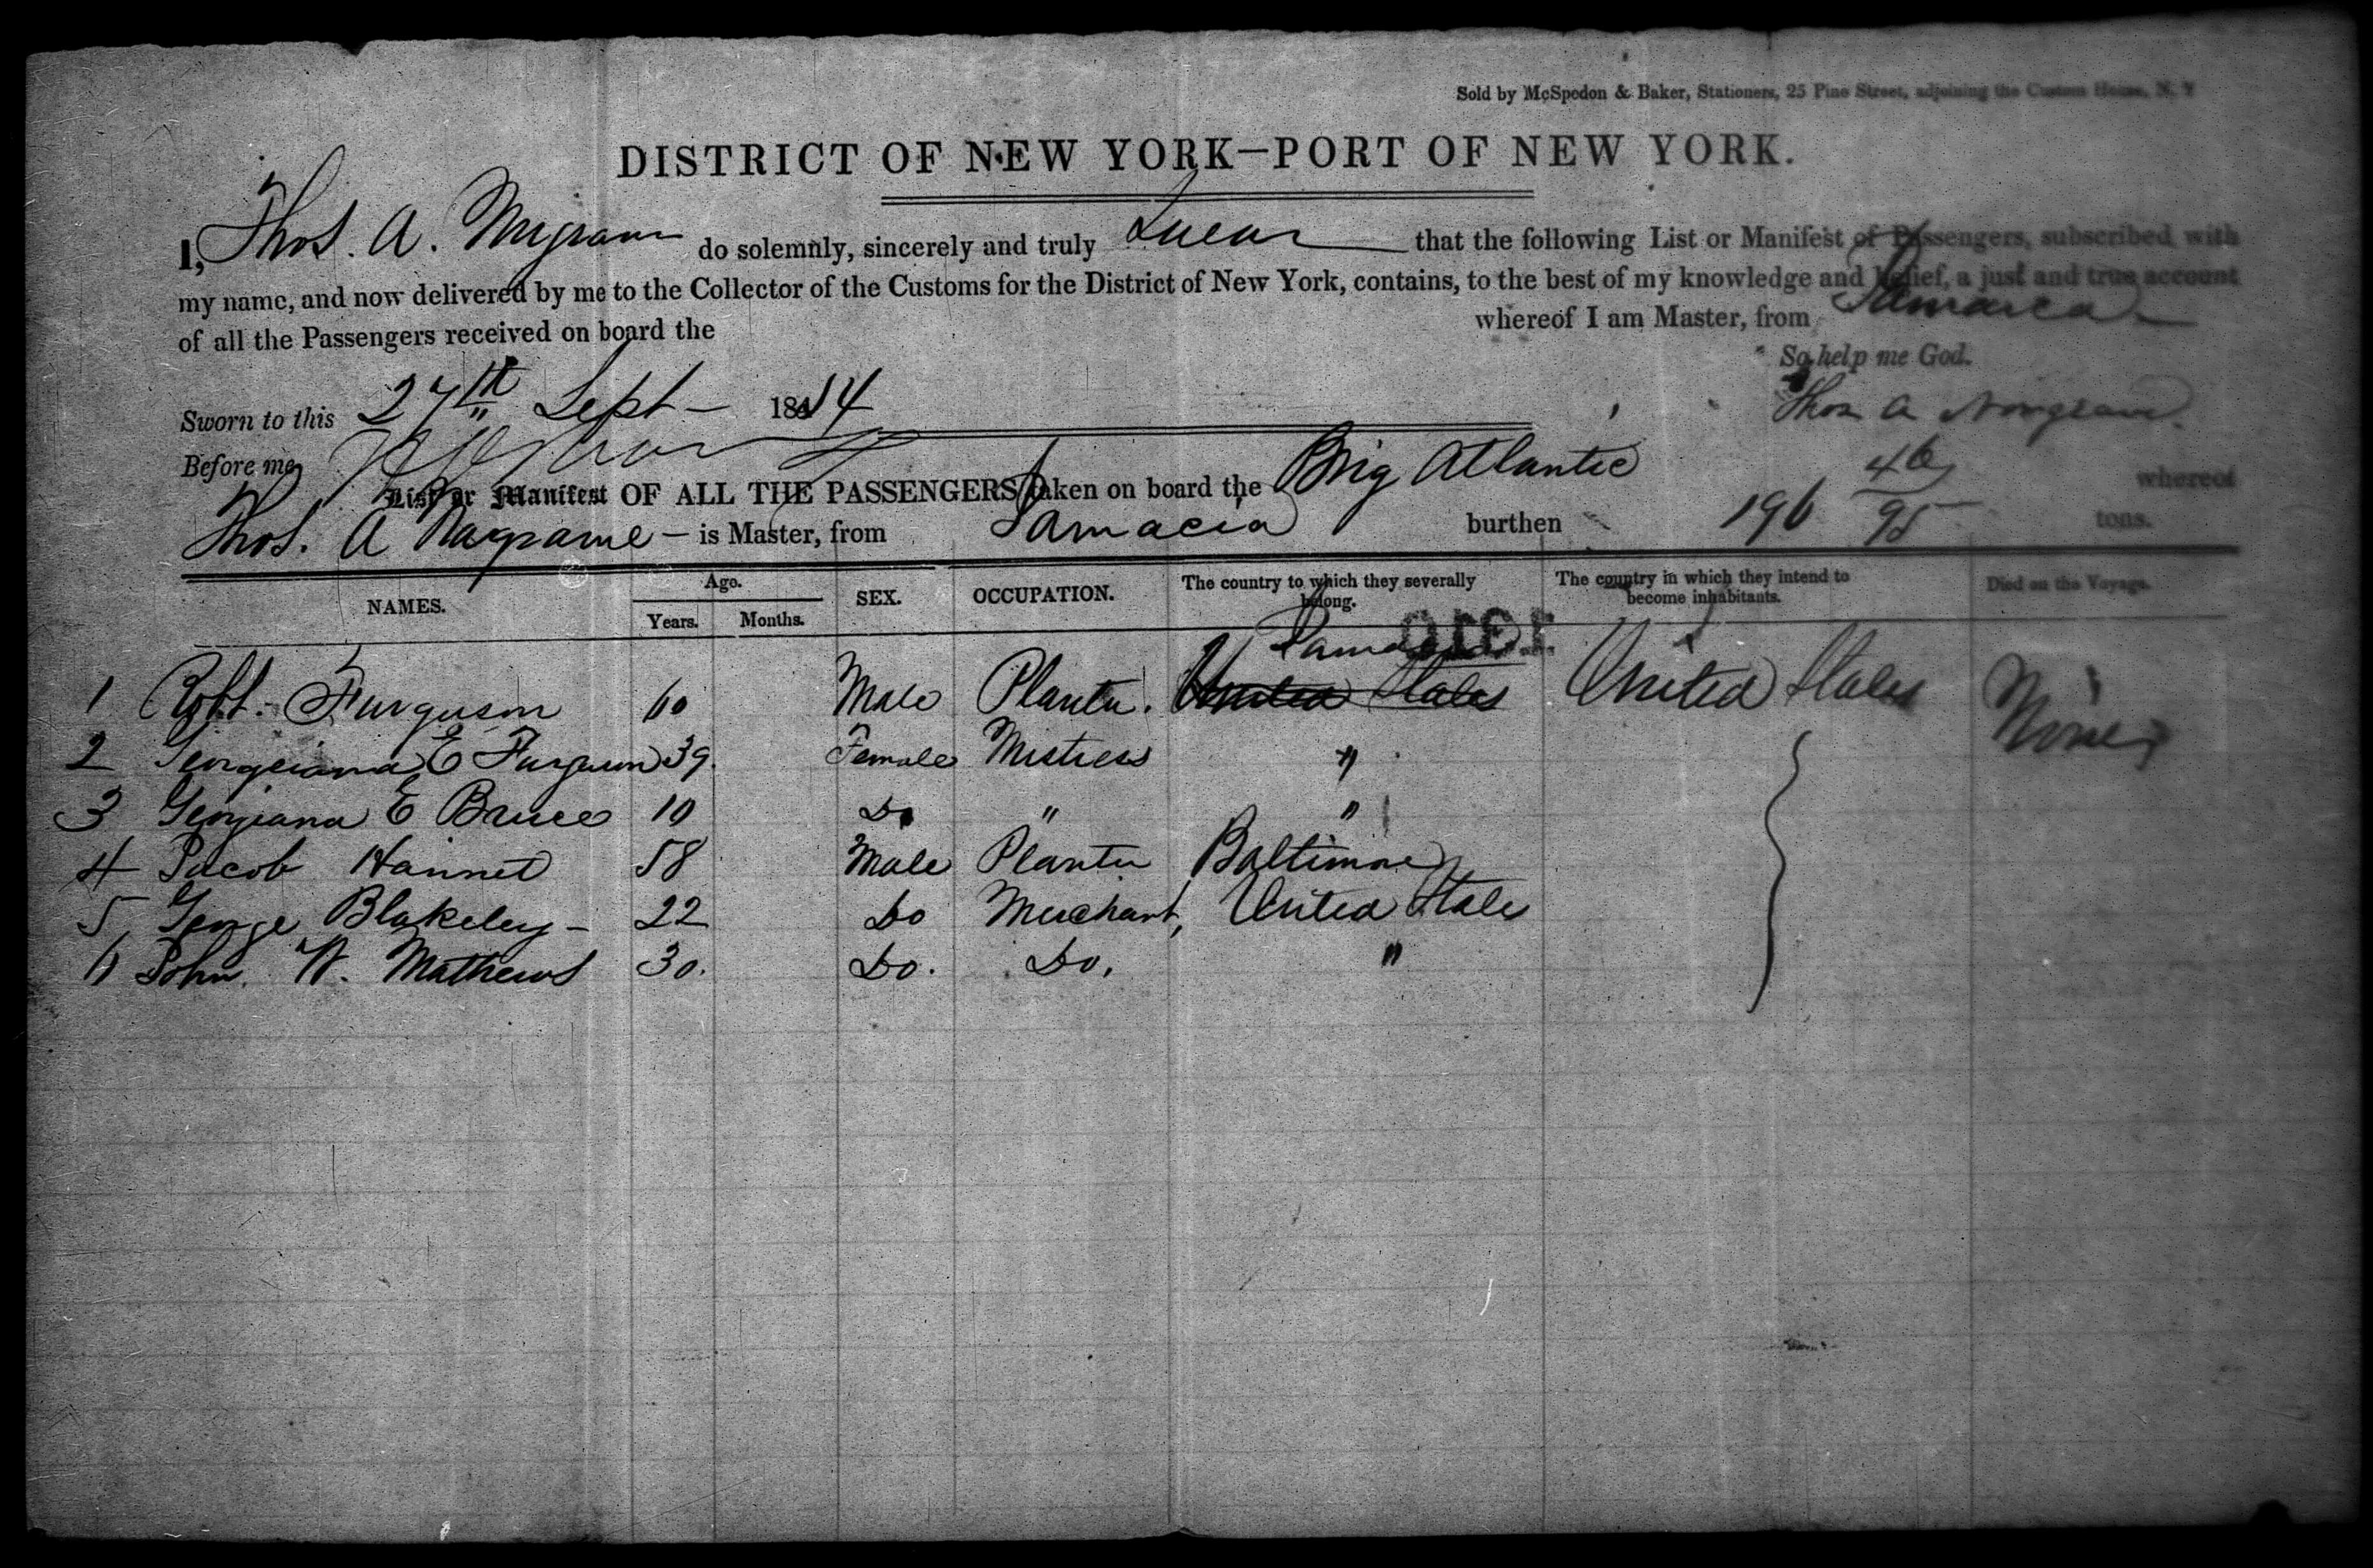 Sold by McSpedon & Baker, Stationers, 25 Pine Street, adjoining the Custom House, N. Y
DISTRICT OF NEW YORK—PORT OF NEW YORK.
I, Thos. A. do solemnly, sincerely and truly Swear that the following List or Manifest of Passengers, subscribed with
my name, and now delivered by me to the Collector of the Customs for the District of New York, contains, to the best of my knowledge and belief, a just and true account
of all the Passengers received on board the whereof I am Master, from Jamaica
So help me God.
Sworn to this 27th Sept - 1844 Thos A
Before me
List or Manifest OF ALL THE PASSENGERS taken on board the Brig Atlantic whereof
Thos. A - is Master, from Jamacia burthen 196 46/95 tons.
NAMES. Age. Years. Months. SEX. OCCUPATION. The country to which they severally belong. The country in which they intend to become inhabitants. Died on the Voyage.
Jamaica
1 Robt. Furguson 60 Male Planter. United States United States None
2 Georgeiana E Furguson 39. Female Mistress "
3 Georgiana E Bruce 10 Do " "
4 Jacob Hannet 58 Male Planter Baltimore
5 George Blakeley - 22 Do Merchant, United State
6 John. W. Mathews 30. Do. Do. "